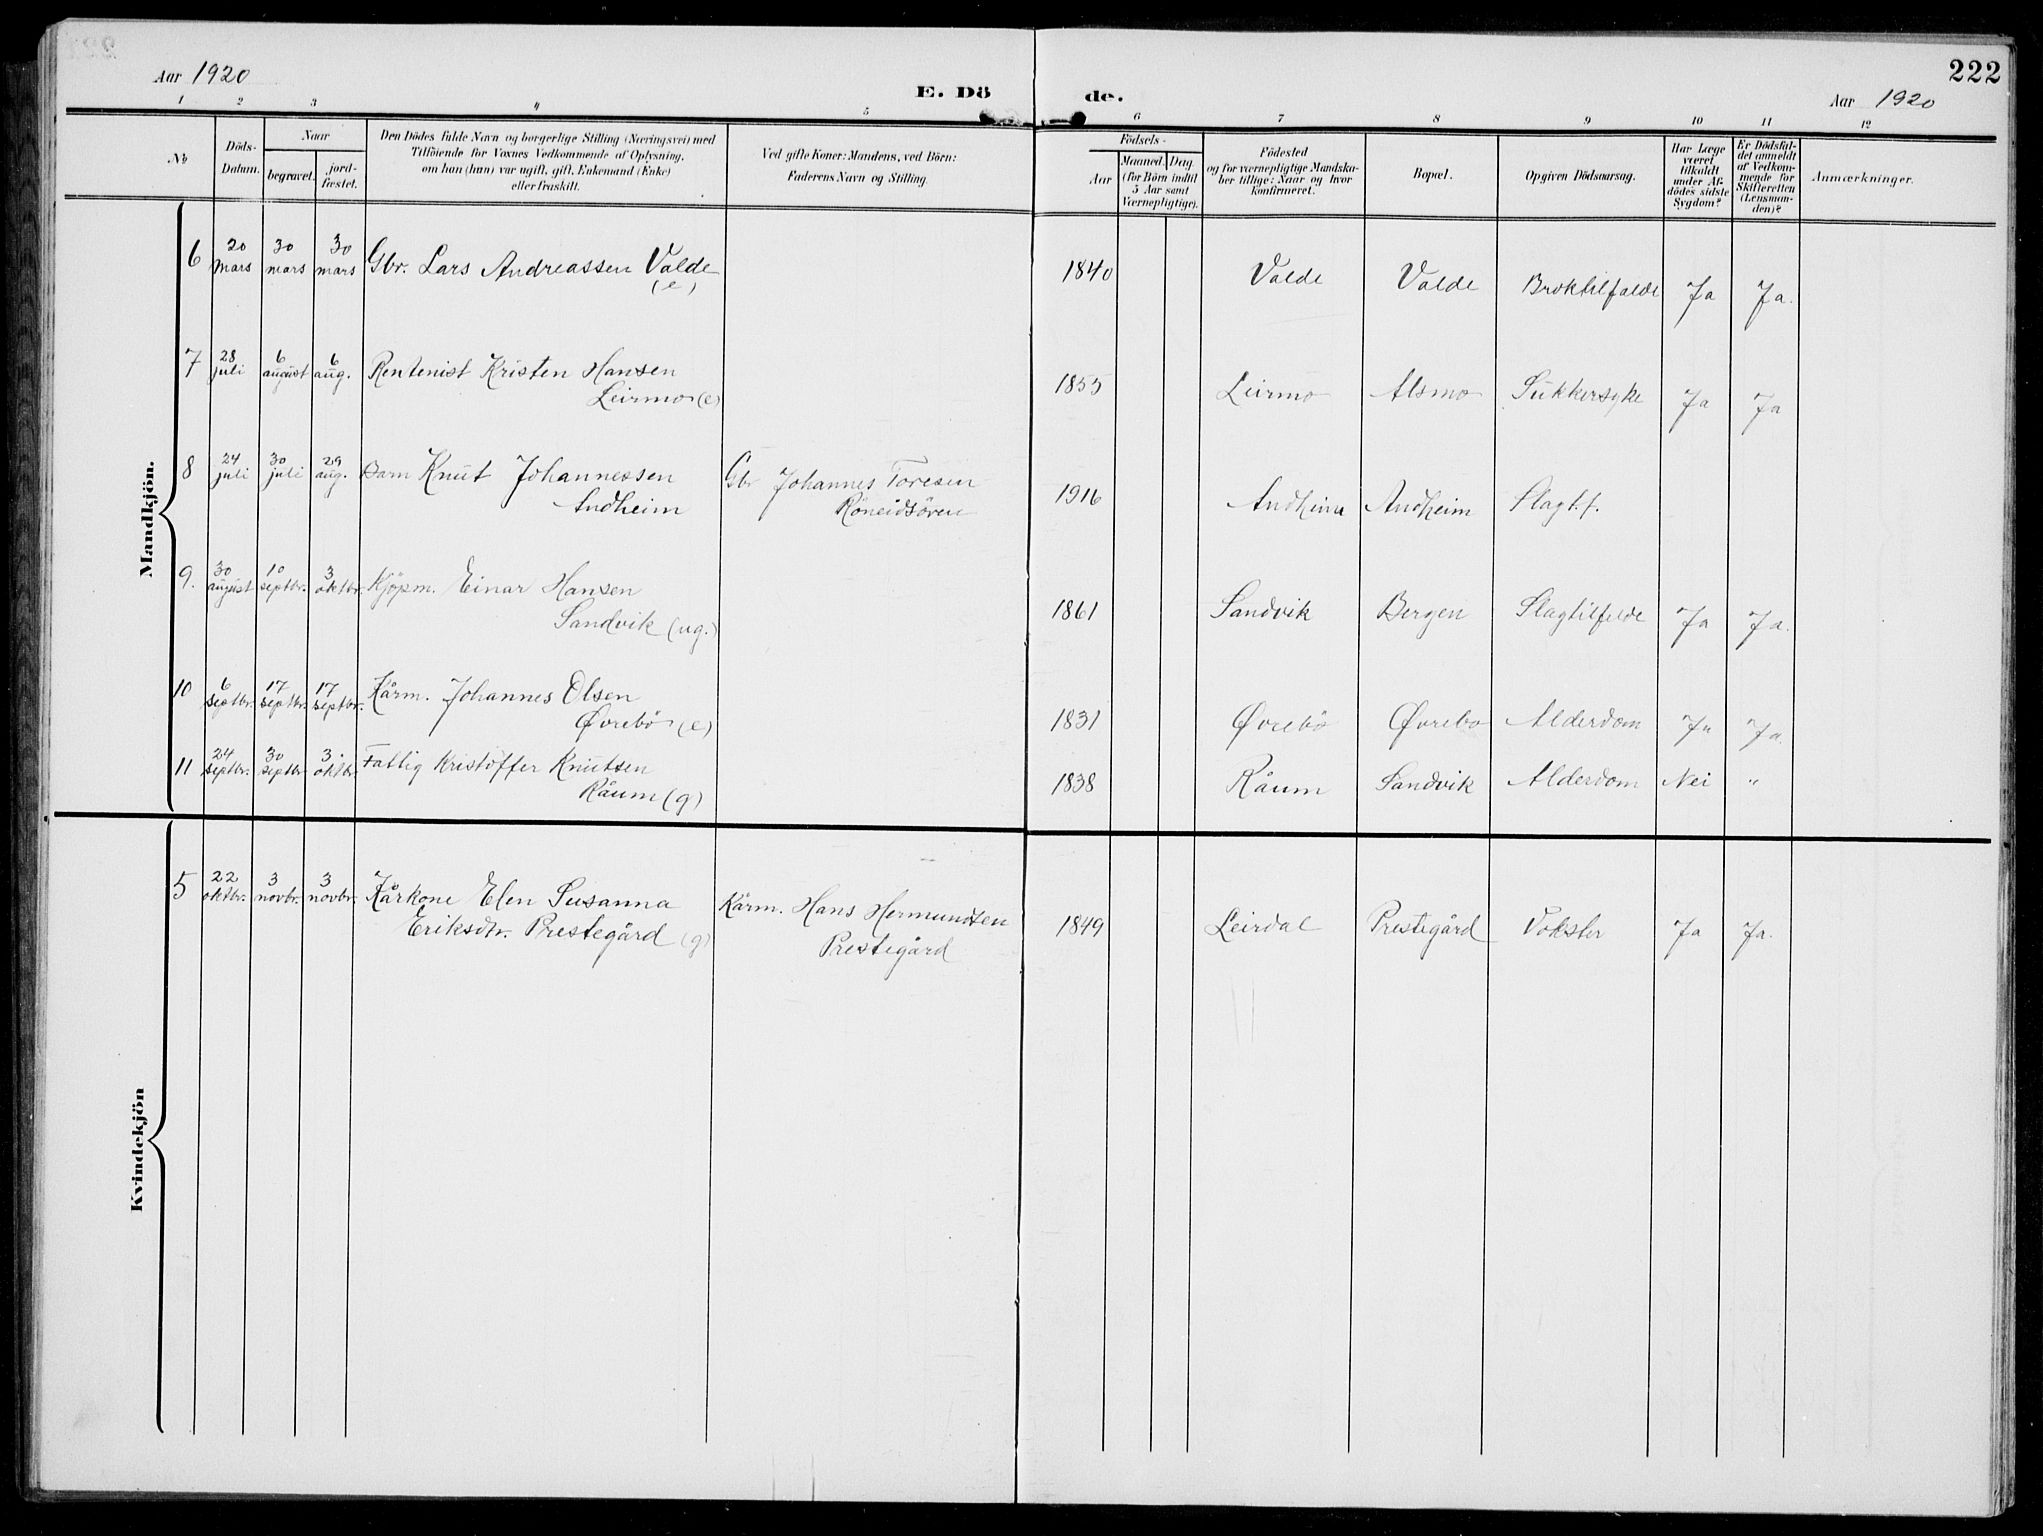 222
Aar 1920
E. Dö de.
Aar 1920
1 2 3 4 5 6 7 8 9 10 11 12
No
Döds-
Datum.
Naar
begravet.
jord-
fæstet.
Den Dödes fulde Navn og borgerlige Stilling (Næringsvei) med
Tilföiende for Voxnes Vedkommende af Oplysning,
om han (hun) var ugift, gift, Enkemand (Enke)
eller fraskilt.
Ved gifte Koner: Mandens, ved Börn:
Faderens Navn og Stilling.
Födsels-
Aar
Maaned. Dag.
(for Börn indtil
5 Aar samt
Værnepligtige).
Födested
og for værnepligtige Mandska-
ber tillige: Naar og hvor
konfirmeret.
Bopæl.
Opgiven Dödsaarsag.
Har Læge
været
tilkaldt
under Af-
dödes sidste
Sygdom?
Er Dödsfal-
det anmeldt
af Vedkom-
mende for
Skifteretten
(Lensman-
den)?
Anmærkninger.
Mandkjön.
6 20 mars 30 mars 30 mars Gbr. Lars Andreassen Valde (e) 1840 Valde Valde Broktilfælde Ja Ja.
7 28 juli 6 august 6 aug. Rentenist Kristen Hansen
Leirmo (e) 1855 Leirmo Alsmo Sukkersyke Ja Ja
8 24 juli 30 juli 29 aug. Barn Knut Johannessen Gbr Johannes Toresen
Indheim Röneidsören 1916 Indheim Indheim Slagt.f.
9. 30 august 10 septbr. 3 oktbr. Kjöpm. Einar Hansen
Sandvik (ug.) 1861 Sandvik Bergen Slagtilfelde Ja Ja.
10 6 septbr. 17 septbr. 17 septbr. Kårm. Johannes Olsen
Øvrebö (e) 1831 Øvrebö Øvrebo Alderdom Ja Ja.
11 24 septbr. 30 septbr 3. oktbr. Fattig Kristoffer Knutsen
Råum (g) 1838 Råum Sandvik Alderdom Nei "
Kvindekjön
5 22 oktbr. 3 novbr. 3 novbr. Kårkone Elen Susanna Kårm. Hans Hermundsen
Eriksdtr. Prestegård (g) Prestegård 1849 Leirdal Prestegård Vokster Ja Ja.